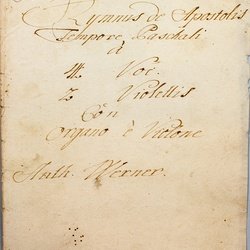 Hymnus de Apostolis
Tempore Paschali
à
4. Voc.
2 Violettis
Con
Organo è Violone
Auth. Werner.